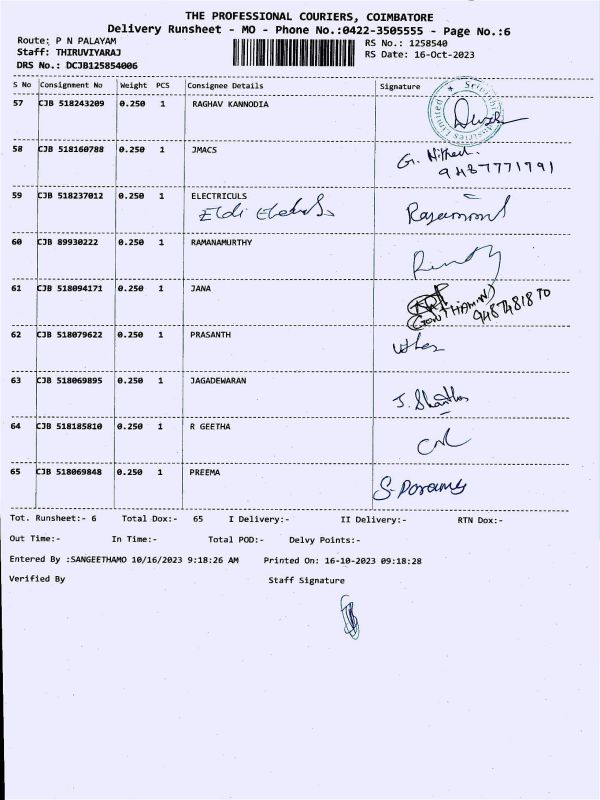 THE PROFESSIONAL COURIERS, COIMBATORE
Delivery Runsheet - MO - Phone No.:0422-3505555 - Page No.:6
Route: P N PALAYAM
RS No.: 1258540
Staff: THIRUVIYARAJ
RS Date: 16-Oct-2023
DRS No.: DCJB125854006
S No Consignment No Weight PCS Consignee Details Signature
57 CJB 518243209 0.250 1 RAGHAV KANNODIA
58 CJB 518160788 0.250 1 JMACS
9487771791
59 CJB 518237012 0.250 1 ELECTRICULS
60 CJB 89930222 0.250 1 RAMANAMURTHY
61 CJB 518094171 0.250 1 JANA
62 CJB 518079622 0.250 1 PRASANTH
63 CJB 518069895 0.250 1 JAGADEWARAN
64 CJB 518185810 0.250 1 R GEETHA
65 CJB 518069848 0.250 1 PREEMA
Tot. Runsheet:- 6 Total Dox:- 65 I Delivery:- II Delivery:- RTN Dox:-
Out Time:- In Time:- Total POD:- Delvy Points:-
Entered By :SANGEETHAMO 10/16/2023 9:18:26 AM Printed On: 16-10-2023 09:18:28
Verified By Staff Signature